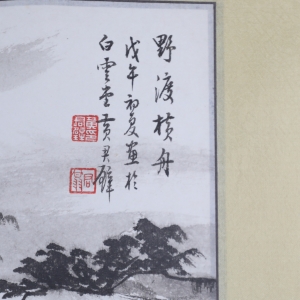 野渡橫舟
戊午初夏畫於
白雲堂黃君璧